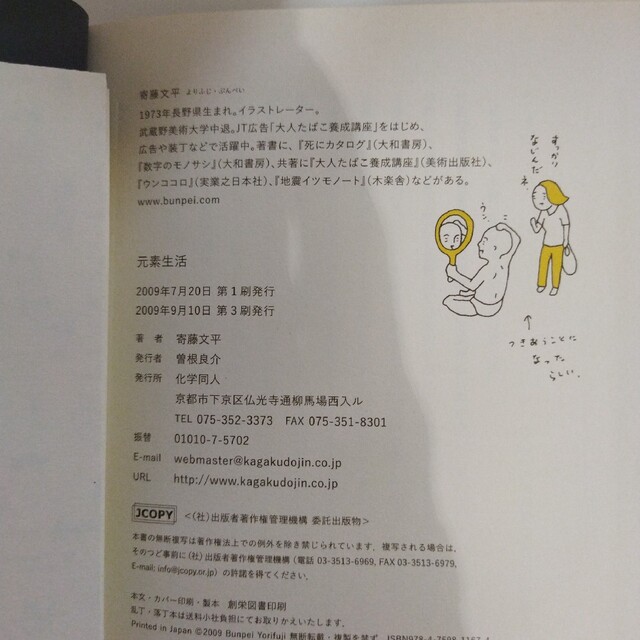 寄藤文平 よりふじ・ぶんぺい
1973年長野県生まれ。イラストレーター。
武蔵野美術大学中退。JT広告「大人たばこ養成講座」をはじめ、
広告や装丁などで活躍中。著書に、『死にカタログ』(大和書房)、
『数字のモノサシ』(大和書房)、共著に『大人たばこ養成講座』(美術出版社)、
『ウンココロ』(実業之日本社)、『地震イツモノート』(木楽舎)などがある。
www.bunpei.com
すっかり
なじんだ
ネ。
ウン。
↑
つきあうことに
なった
らしい。
元素生活
2009年7月20日 第1刷発行
2009年9月10日 第3刷発行
著 者 寄藤文平
発行者 曽根良介
発行所 化学同人
京都市下京区仏光寺通柳馬場西入ル
TEL 075-352-3373 FAX 075-351-8301
振替 01010-7-5702
E-mail webmaster@kagakudojin.co.jp
URL http://www.kagakudojin.co.jp
JCOPY <(社)出版者著作権管理機構 委託出版物>
本書の無断複写は著作権法上での例外を除き禁じられています。複写される場合は、
そのつど事前に(社)出版者著作権管理機構(電話 03-3513-6969、FAX 03-3513-6979、
E-mail: info@jcopy.or.jp)の許諾を得てください。
本文・カバー印刷・製本 創栄図書印刷
乱丁・落丁本は送料小社負担にてお取りかえいたします。
Printed in Japan ©2009 Bunpei Yorifuji 無断転載・複製を禁ず